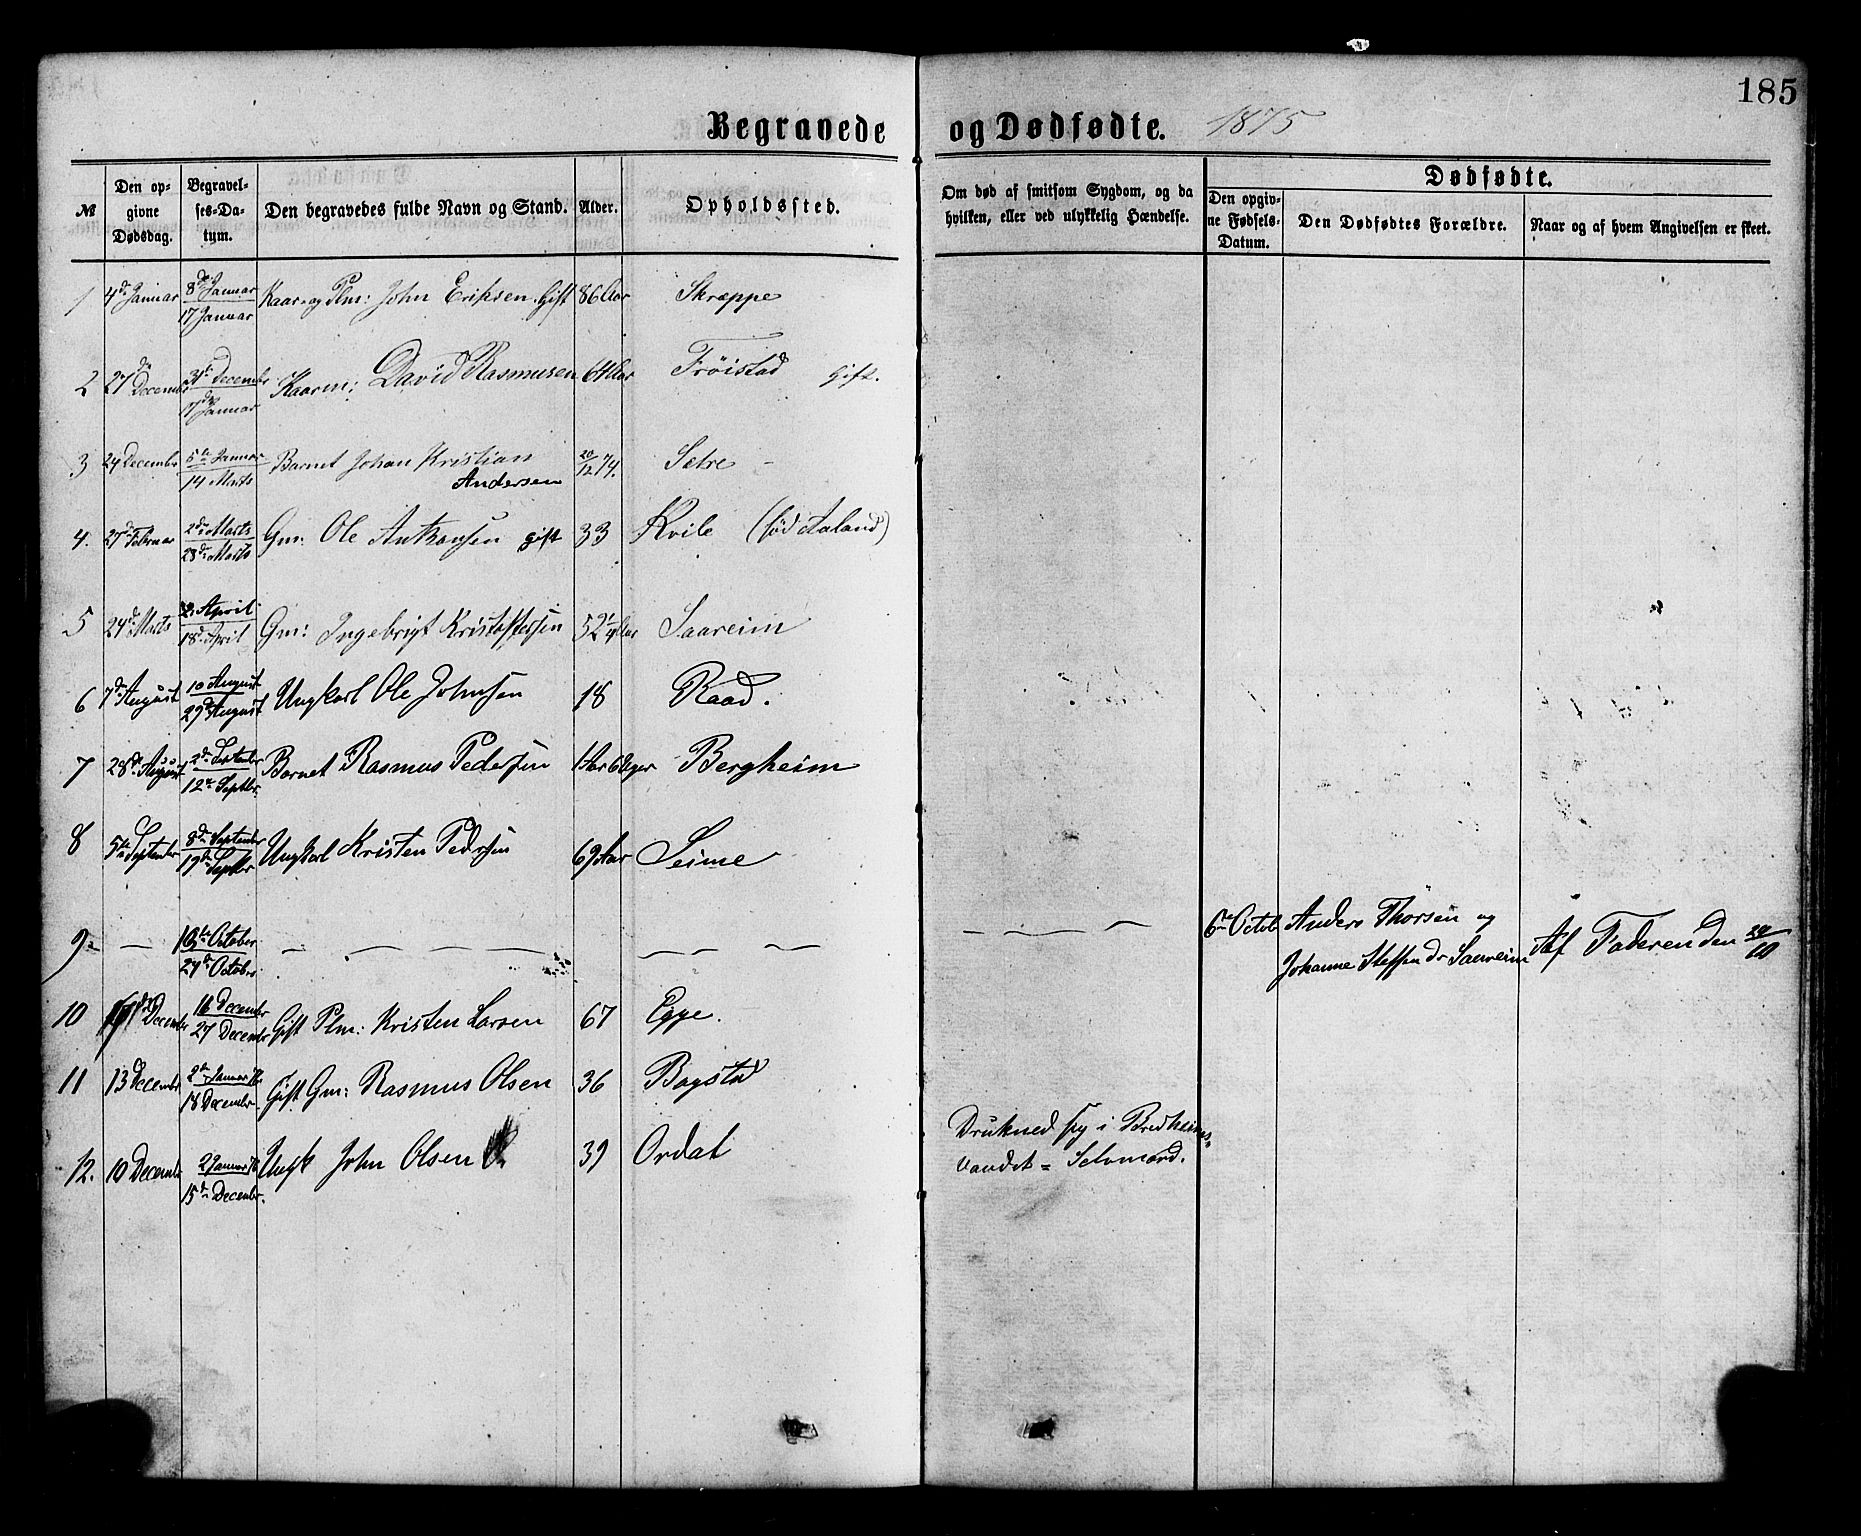 185
Begravede og Dødfødte. 1875
№ Den op- givne Dødsdag. Begravel- ses-Da- tum. Den begravedes fulde Navn og Stand. Alder. Opholdssted. Om død af smitsom Sygdom, og da hvilken, eller ved ulykkelig Hændelse. Dødfødte. Den opgiv- ne Fødsels- Datum. Den Dødfødtes Forældre. Naar og af hvem Angivelsen er skeet.
1 4de Januar 8de Januar 17 Januar Kaar- og Plm: John Eriksen. Gift 86 Aar Skræppe
2 27de December 31te December 17de Januar Kaarm: David Rasmusen 64 Aar Frøistad Gift.
3 24 December 5te Januar 14 Marts Barnet Johan Kristian Andersen 20/12 74. Sætre –
4. 27de Februar 2de Marts 28de Marts Gm: Ole gift 33 Kvile (fød Aaland)
5 24de Marts 2. April 18de April Gm: Ingebrigt Kristoffersen 52 1/4 Aar Saareim
6 7de August 10 August 29de August Ungkarl Ole Johnsen 18 Raad.
7 28de August 2de September 12te Septbr. Barnet Rasmus Pedersen 1 Aar 6 Uger Bergheim
8 5te September 8de September 19de Septbr Ungkarl Kristen Pedersen 69 Aar Seime
9 – – 10de October 24de October – – – – – – – – – 6te Octob Anders Thorsen og Johanne Steffensdr Saareim Af Faderen den 24/10
10 December 16 December 27 December Gift Plm: Kristen Larsen 67 Egge.
11 13 December 2de Januar 76 18 December Gift Gm: Rasmus Olsen 36 Bogstad
12. 10 December 2 Januar 76 15de December. Ungk John Olsen 39 Ordal Drukned sig i Bredheims- vandet = Selvmord.